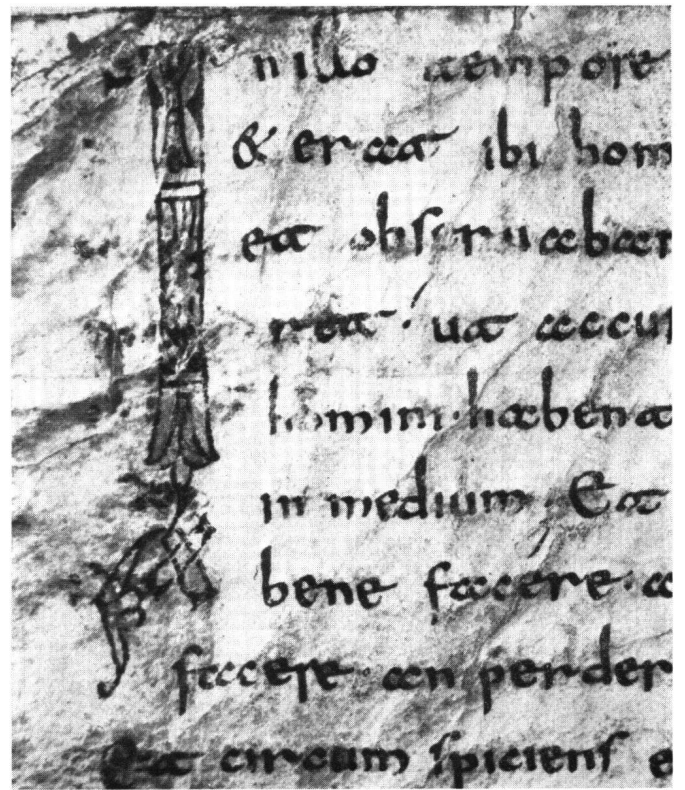 Inillo tempore
& erat ibi hom
et obseruaban
ret · ut accus
homini · habent
in medium · Et
bene facere · a
facere · an perder
Et circum spiciens e